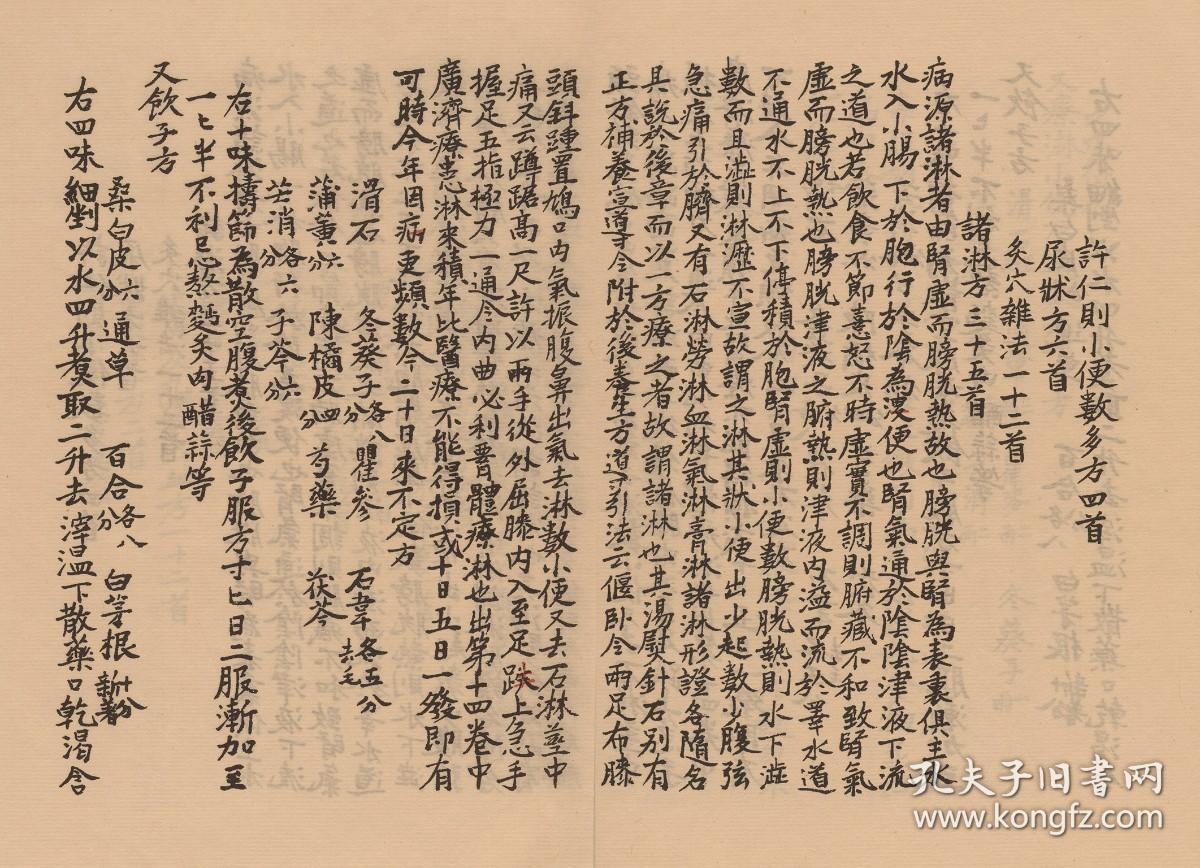 許仁則小便數多方四首
尿牀方六首
灸穴雜法一十二首
諸淋方三十五首
病源諸淋者由腎虛而膀胱熱故也膀胱與腎為表裏俱主水
水入小腸下於胞行於陰為溲便也腎氣通於陰陰津液下流
之道也若飲食不節喜怒不時虛實不調則腑藏不和致腎氣
虛而膀胱熱也膀胱津液之腑熱則津液內溢而流於睪水道
不通水不上不下停積於胞腎虛則小便數膀胱熱則水下澁
數而且澁則淋瀝不宣故謂之淋其狀小便出少起數少腹弦
急痛引於臍又有石淋勞淋血淋氣淋膏淋諸淋形證各隨名
具說於後章而以一方療之者故謂諸淋也其湯熨針石別有
正方補養宣導今附於後養生方導引法云偃臥令兩足布膝
頭斜踵置鳩口內氣振腹鼻出氣去淋數小便又去石淋莖中
痛又云蹲踞高一尺許以兩手從外屈膝內入至足趺上急手
握足五指極力一通令內曲必利䯊體療淋也出第十四卷中
廣濟療患淋來積年比醫療不能得損或十日五日一發即有
可時今年因病更頻數今二十日來不定方
滑石 冬葵子各八分 瞿麥 石韋各五分去毛
蒲黃六分 陳橘皮四分 芍藥 茯苓
芒消各六分 子芩六分
右十味擣篩為散空腹煮後飲子服方寸匕日二服漸加至
一匕半不利忌熱麪炙肉醋蒜等
又飲子方
桑白皮六分 通草 百合各八分 白茅根
右四味細剉以水四升煮取二升去滓溫下散藥口乾渴含
孔夫子旧书网
www.kongfz.com